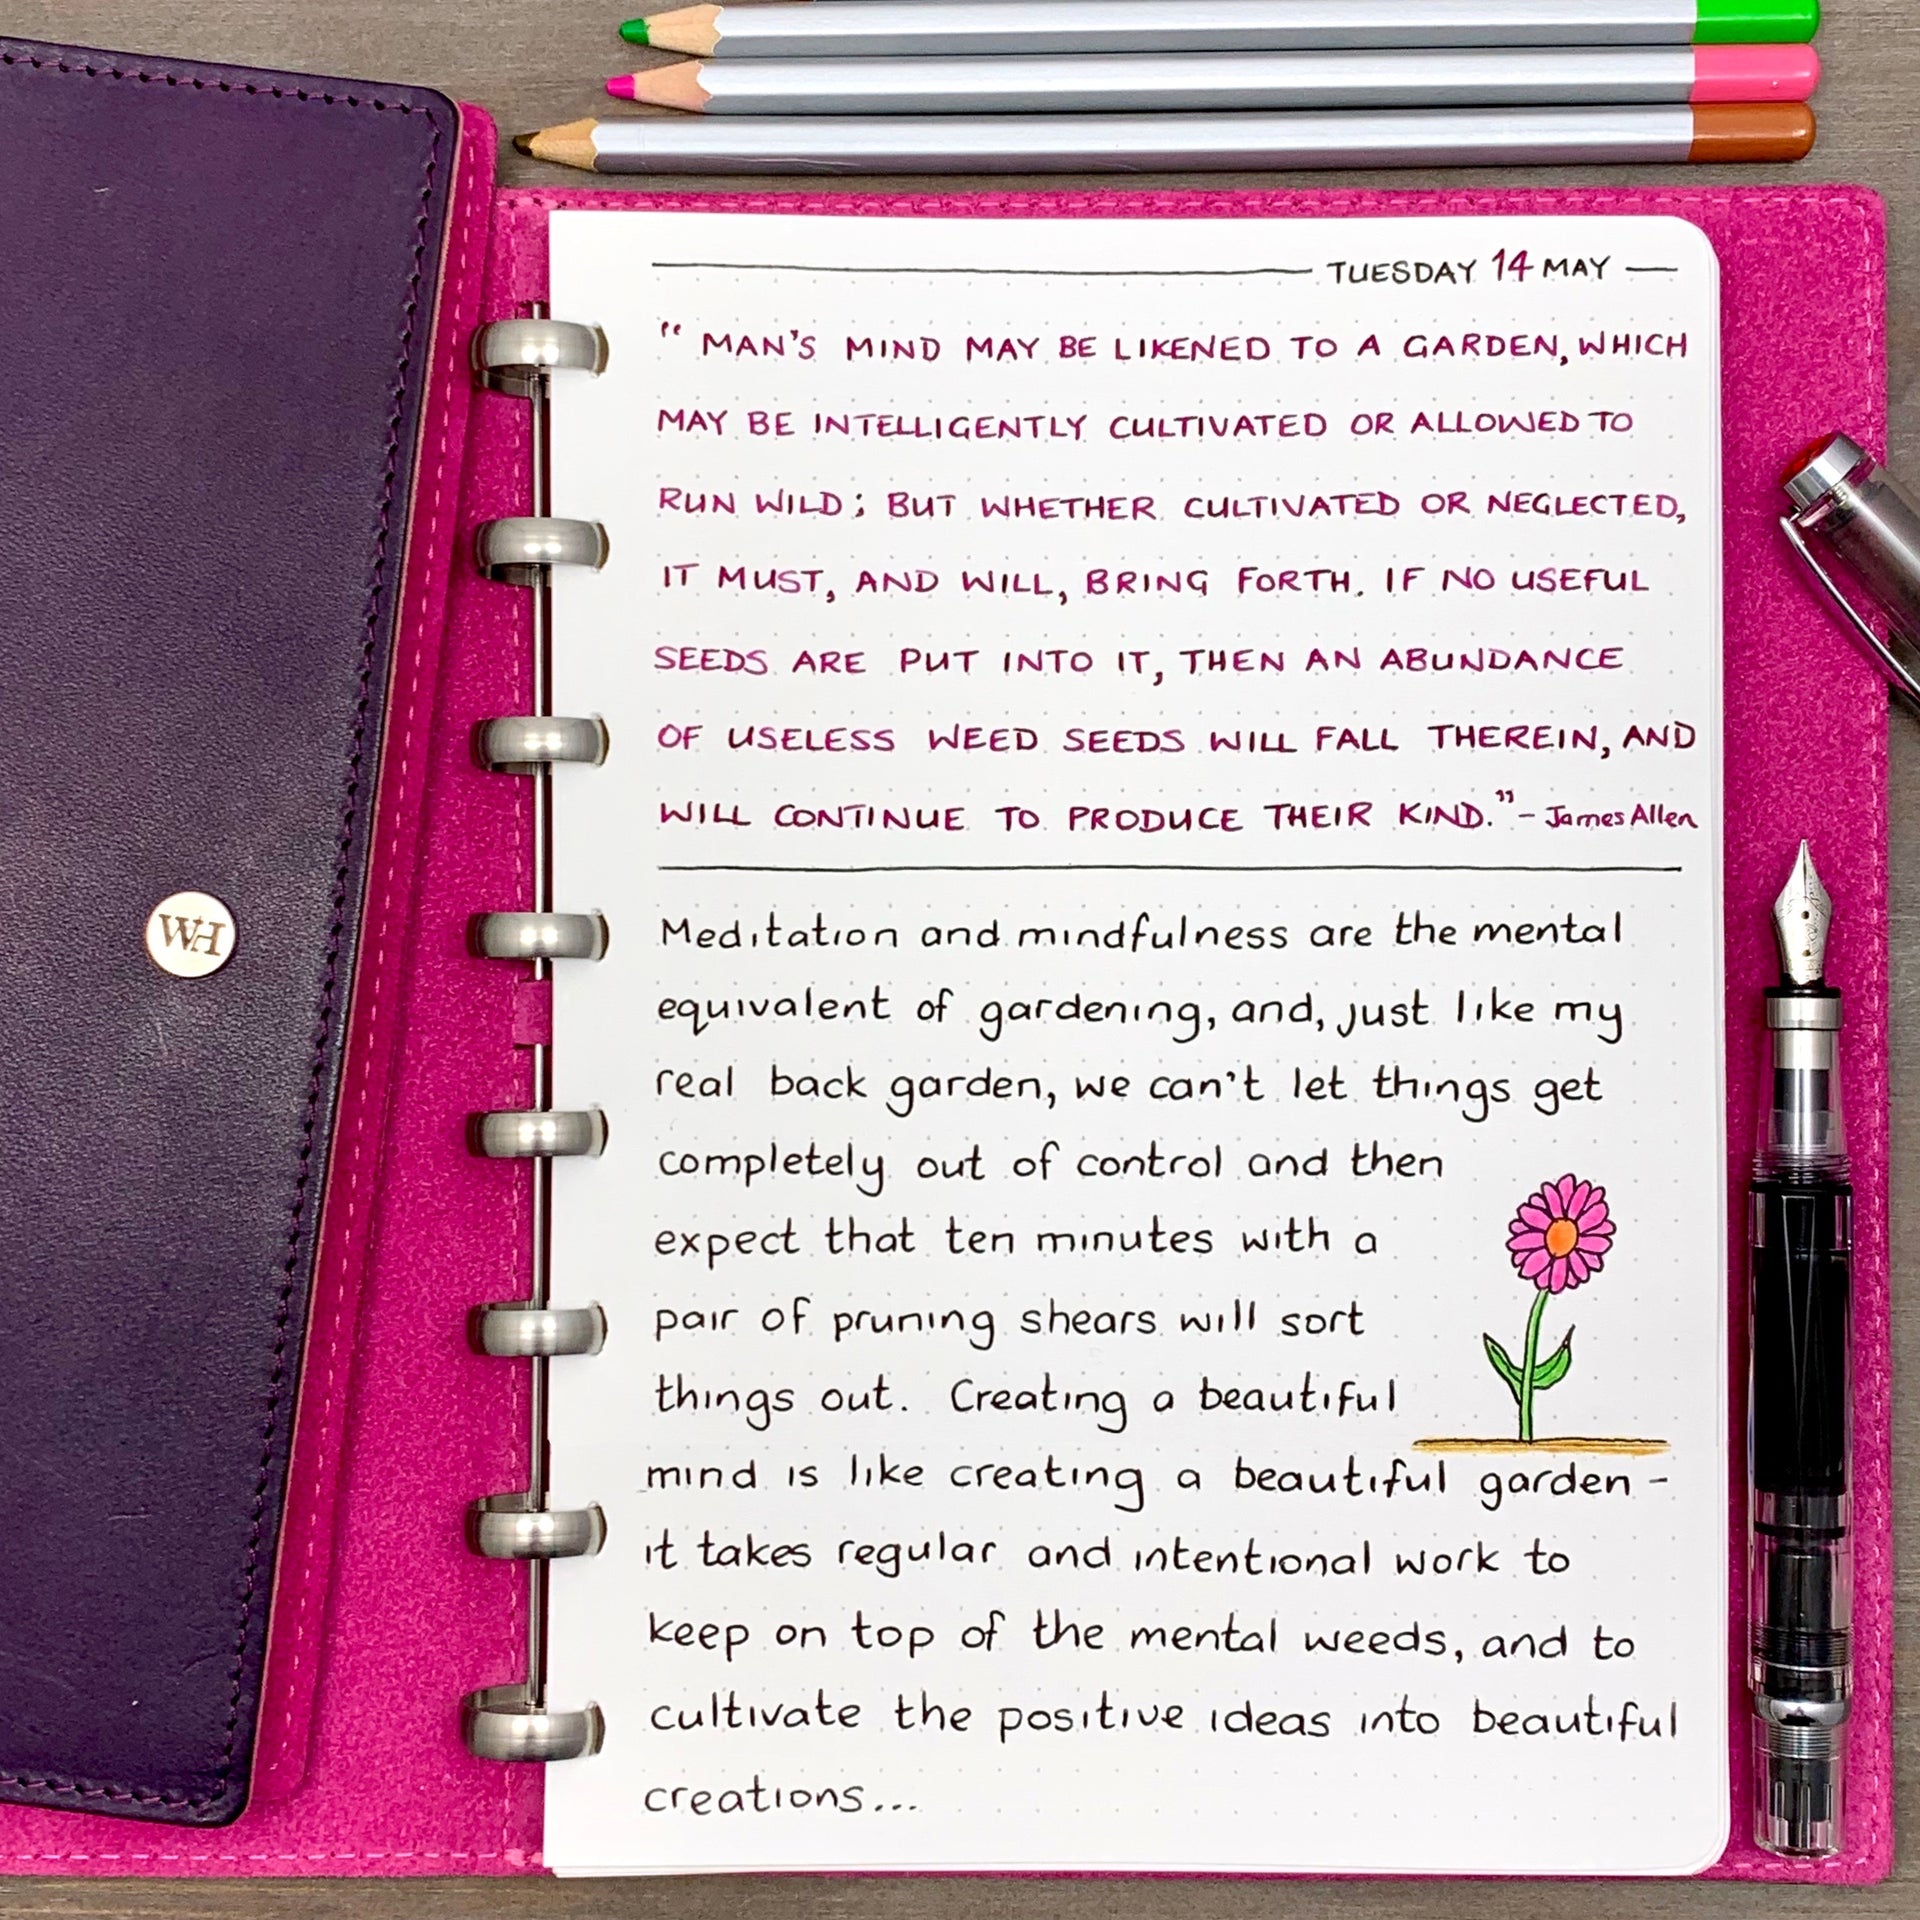 TUESDAY 14 MAY
" MAN'S MIND MAY BE LIKENED TO A GARDEN, WHICH
MAY BE INTELLIGENTLY CULTIVATED OR ALLOWED TO
RUN WILD; BUT WHETHER CULTIVATED OR NEGLECTED,
IT MUST, AND WILL, BRING FORTH. IF NO USEFUL
SEEDS ARE PUT INTO IT, THEN AN ABUNDANCE
OF USELESS WEED SEEDS WILL FALL THEREIN, AND
WILL CONTINUE TO PRODUCE THEIR KIND." - James Allen
Meditation and mindfulness are the mental
equivalent of gardening, and, just like my
real back garden, we can't let things get
completely out of control and then
expect that ten minutes with a
pair of pruning shears will sort
things out. Creating a beautiful
mind is like creating a beautiful garden -
it takes regular and intentional work to
keep on top of the mental weeds, and to
cultivate the positive ideas into beautiful
creations...
WH